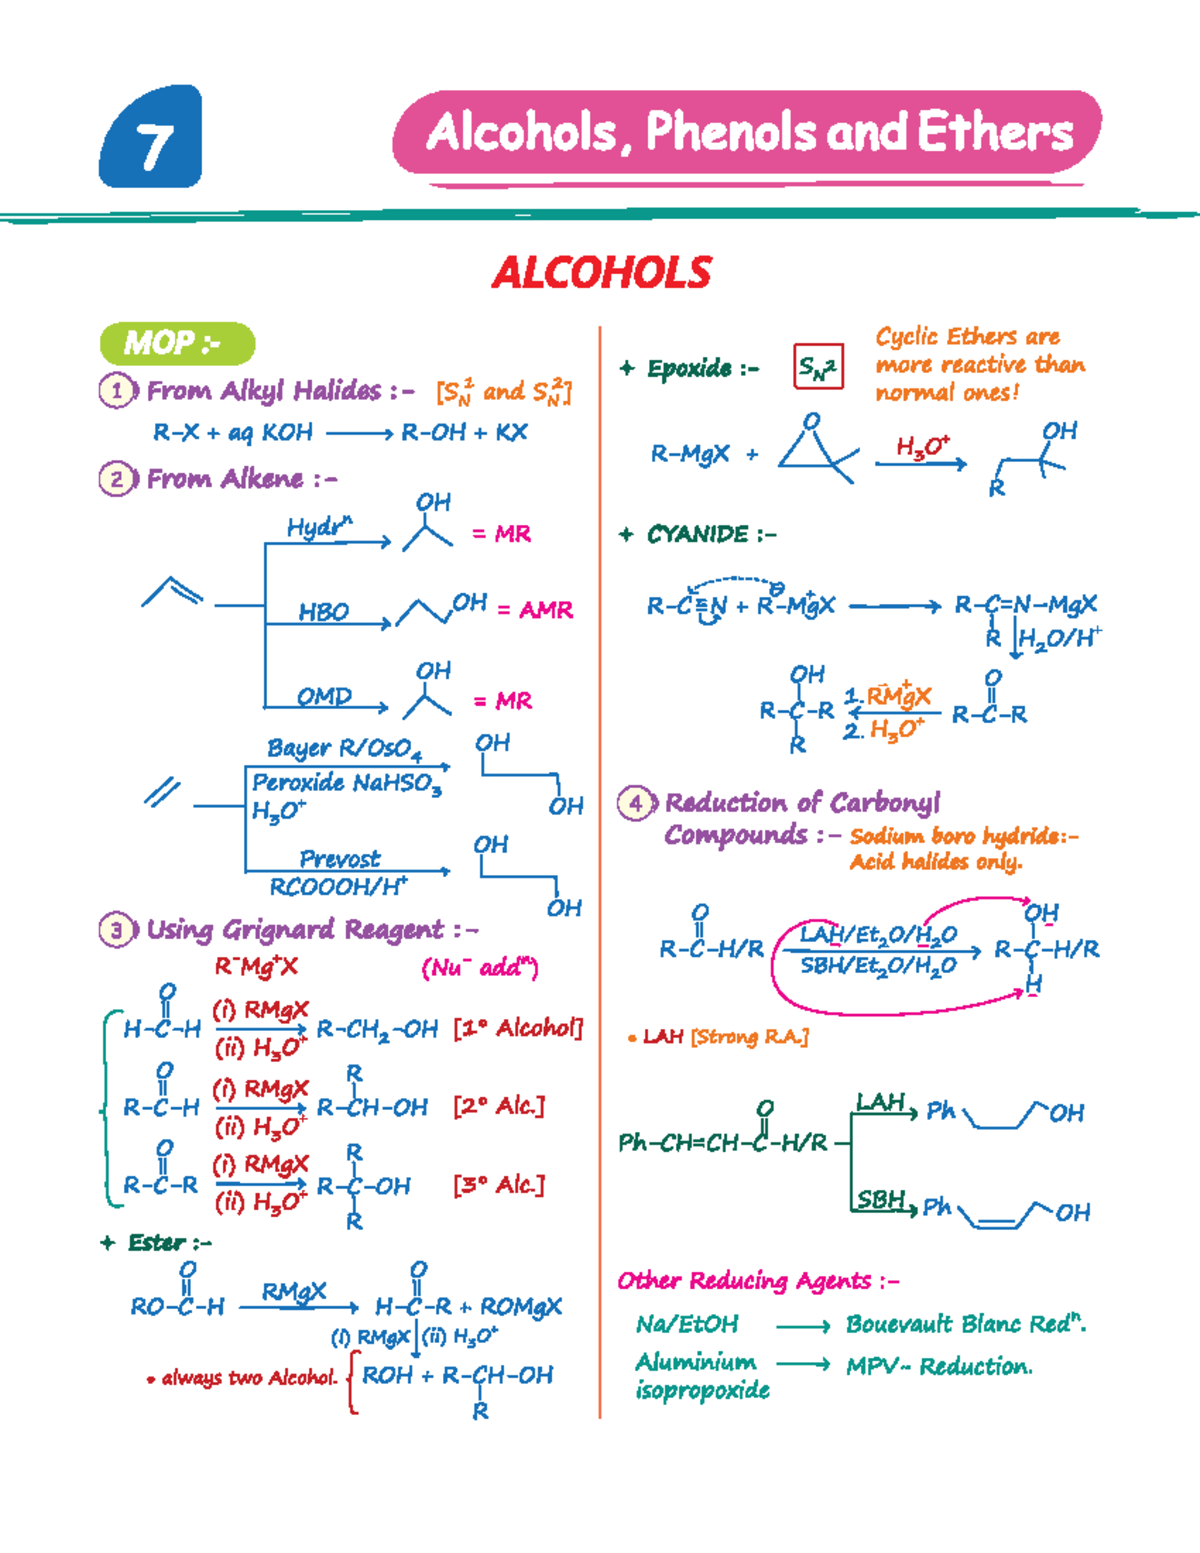 7
Alcohols, Phenols and Ethers
ALCOHOLS
MOP :-
1 From Alkyl Halides :- [S_N^1 and S_N^2]
R-X + aq KOH → R-OH + KX
2 From Alkene :-
OH
Hydrⁿ = MR
HBO OH = AMR
OH
OMD = MR
Bayer R/OsO₄ OH
Peroxide NaHSO₃
H₃O⁺ OH
Prevost OH
RCOOOH/H⁺
OH
3 Using Grignard Reagent :-
R⁻Mg⁺X (Nu⁻ addⁿ)
O
H-C-H (i) RMgX (ii) H₃O⁺ R-CH₂-OH [1° Alcohol]
O R
R-C-H (i) RMgX (ii) H₃O⁺ R-CH-OH [2° Alc.]
O R
R-C-R (i) RMgX (ii) H₃O⁺ R-C-OH [3° Alc.]
R
+ Ester :-
O O
RO-C-H RMgX → H-C-R + ROMgX
(i) RMgX (ii) H₃O⁺
• always two Alcohol. ROH + R-CH-OH
R
+ Epoxide :- S_N2
Cyclic Ethers are
more reactive than
normal ones!
O OH
R-MgX + H₃O⁺
R
+ CYANIDE :-
R-C≡N + R-MgX⊖ + → R-C=N-MgX
R H₂O/H⁺
OH O
R-C-R 1. R⁻Mg⁺X R-C-R
2. H₃O⁺
R
4 Reduction of Carbonyl
Compounds :- Sodium boro hydride:-
Acid halides only.
O OH
R-C-H/R LAH/Et₂O/H₂O R-C-H/R
SBH/Et₂O/H₂O
H
• LAH [Strong R.A.]
O LAH Ph OH
Ph-CH=CH-C-H/R
SBH Ph OH
Other Reducing Agents :-
Na/EtOH → Bouevault Blanc Redⁿ.
Aluminium → MPV~ Reduction.
isopropoxide